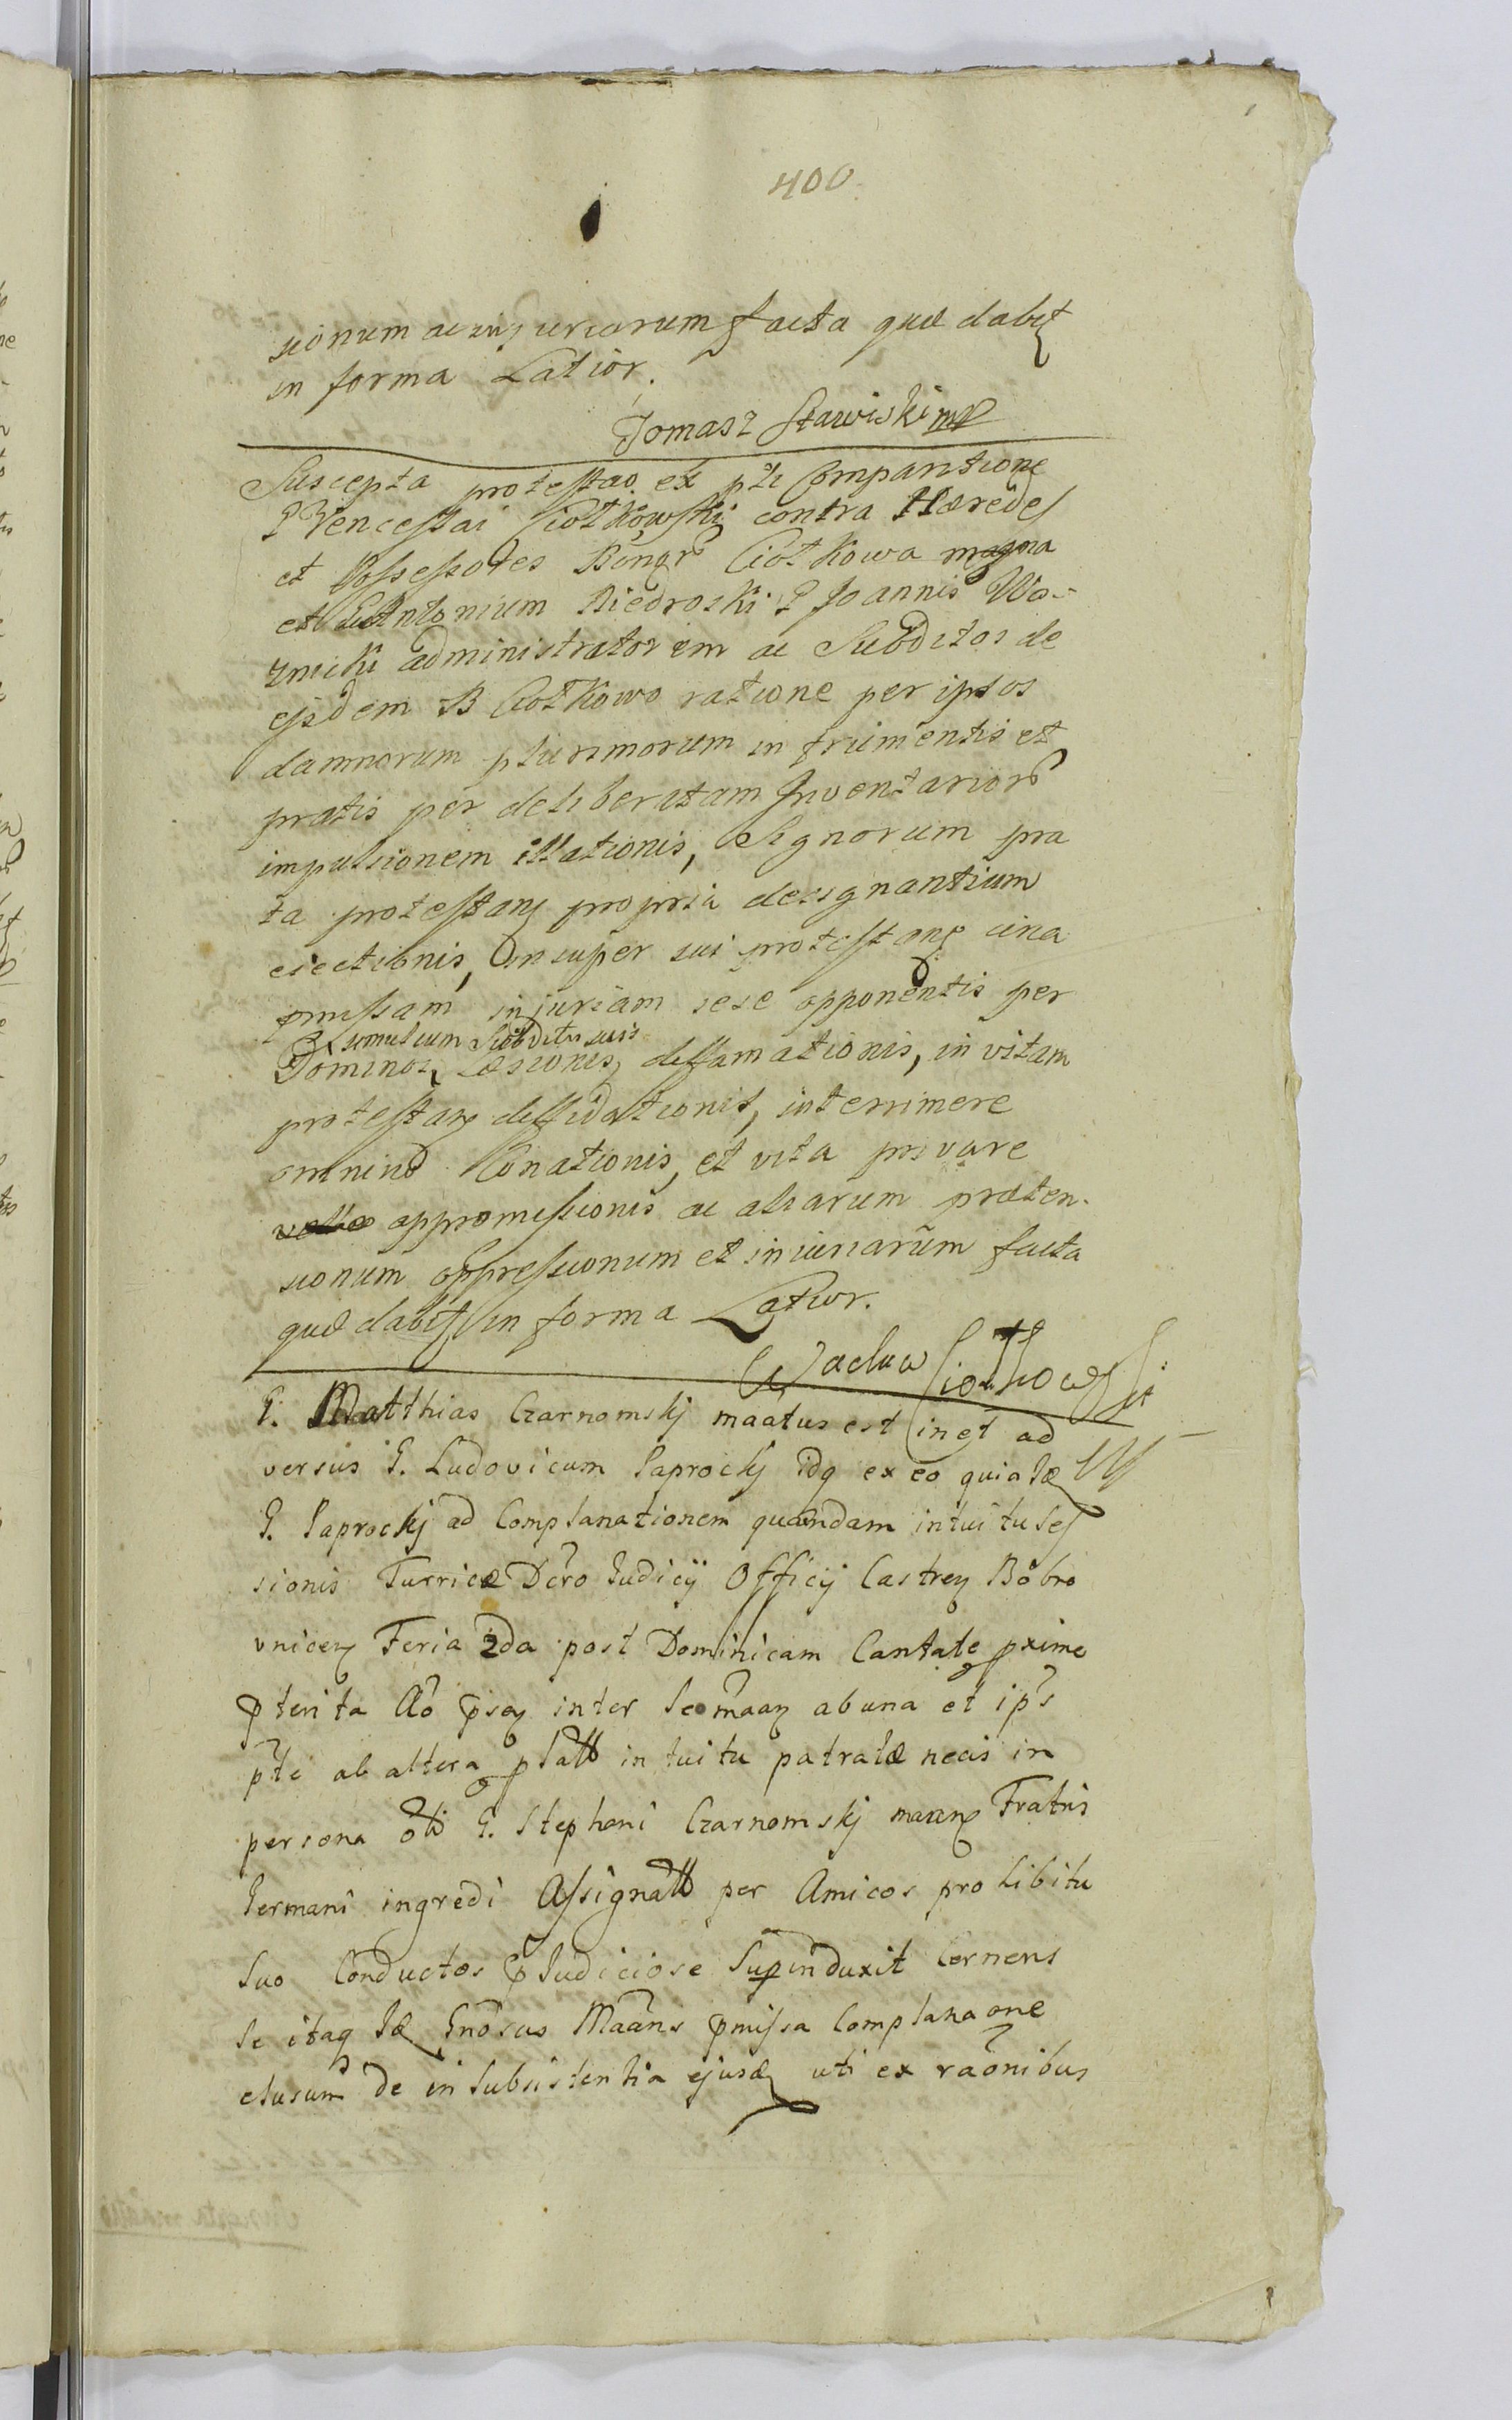 400
sionum ac injuriarum facta quæ dabit
in forma Latior.
Tomasz Stawiski mp
Suscepta protestao ex pte Comparitione
G Venceslai Ciołkowski contra Hæredes
et Possessores Bonor Ciołkowa magna
et G Antonium Biedroski G Joannis Wo-
znicki administratorem ac Subditos de
ejsdem B Ciołkowo ratione per ipsos
damnorum plurimorum in frumentis et
pratis per deliberatam Inventarior
impulsionem illationis, Signorum pra
ta protestan propria designantium
eiectionis, Insuper sui protestans circa
pmissam injuriam sese opponentis per
simul cum Subditis suis
Dominos, Læsionis, diffamationis, in vitam
protestan diffidationis, interrimere
omnino Conationis, et vita privare
velle appromissionis ac aliarum præten-
sionum oppressionum et injuriarum facta
quæ dabit in forma Latior.
Wacław Ciołkowski
G. Matthias Czarnomskj maatus est in et ad
versus G. Ludovicum Paprockj idq ex eo quia Id
G. Paprockj ad Complanationem quandam intuitu Ses
sionis Turricæ Dcro Iudicij Officij Castren Bobro
vnicen Feria 2da post Dominicam Cantate pxime
pterita Ao psen inter se maan ab una et ips
pte ab altera ptatt intuitu patratæ necis in
persona oli G. Stephani Czarnomskj maan Fratris
Germani ingredi Assignatt per Amicos pro libitu
suo Conductos pIudiciose Supinduxit Cernens
se itaq Id Gnosus Maans pmissa Complanaone
elusum de in Subsistentia ejusd uti ex raonibus